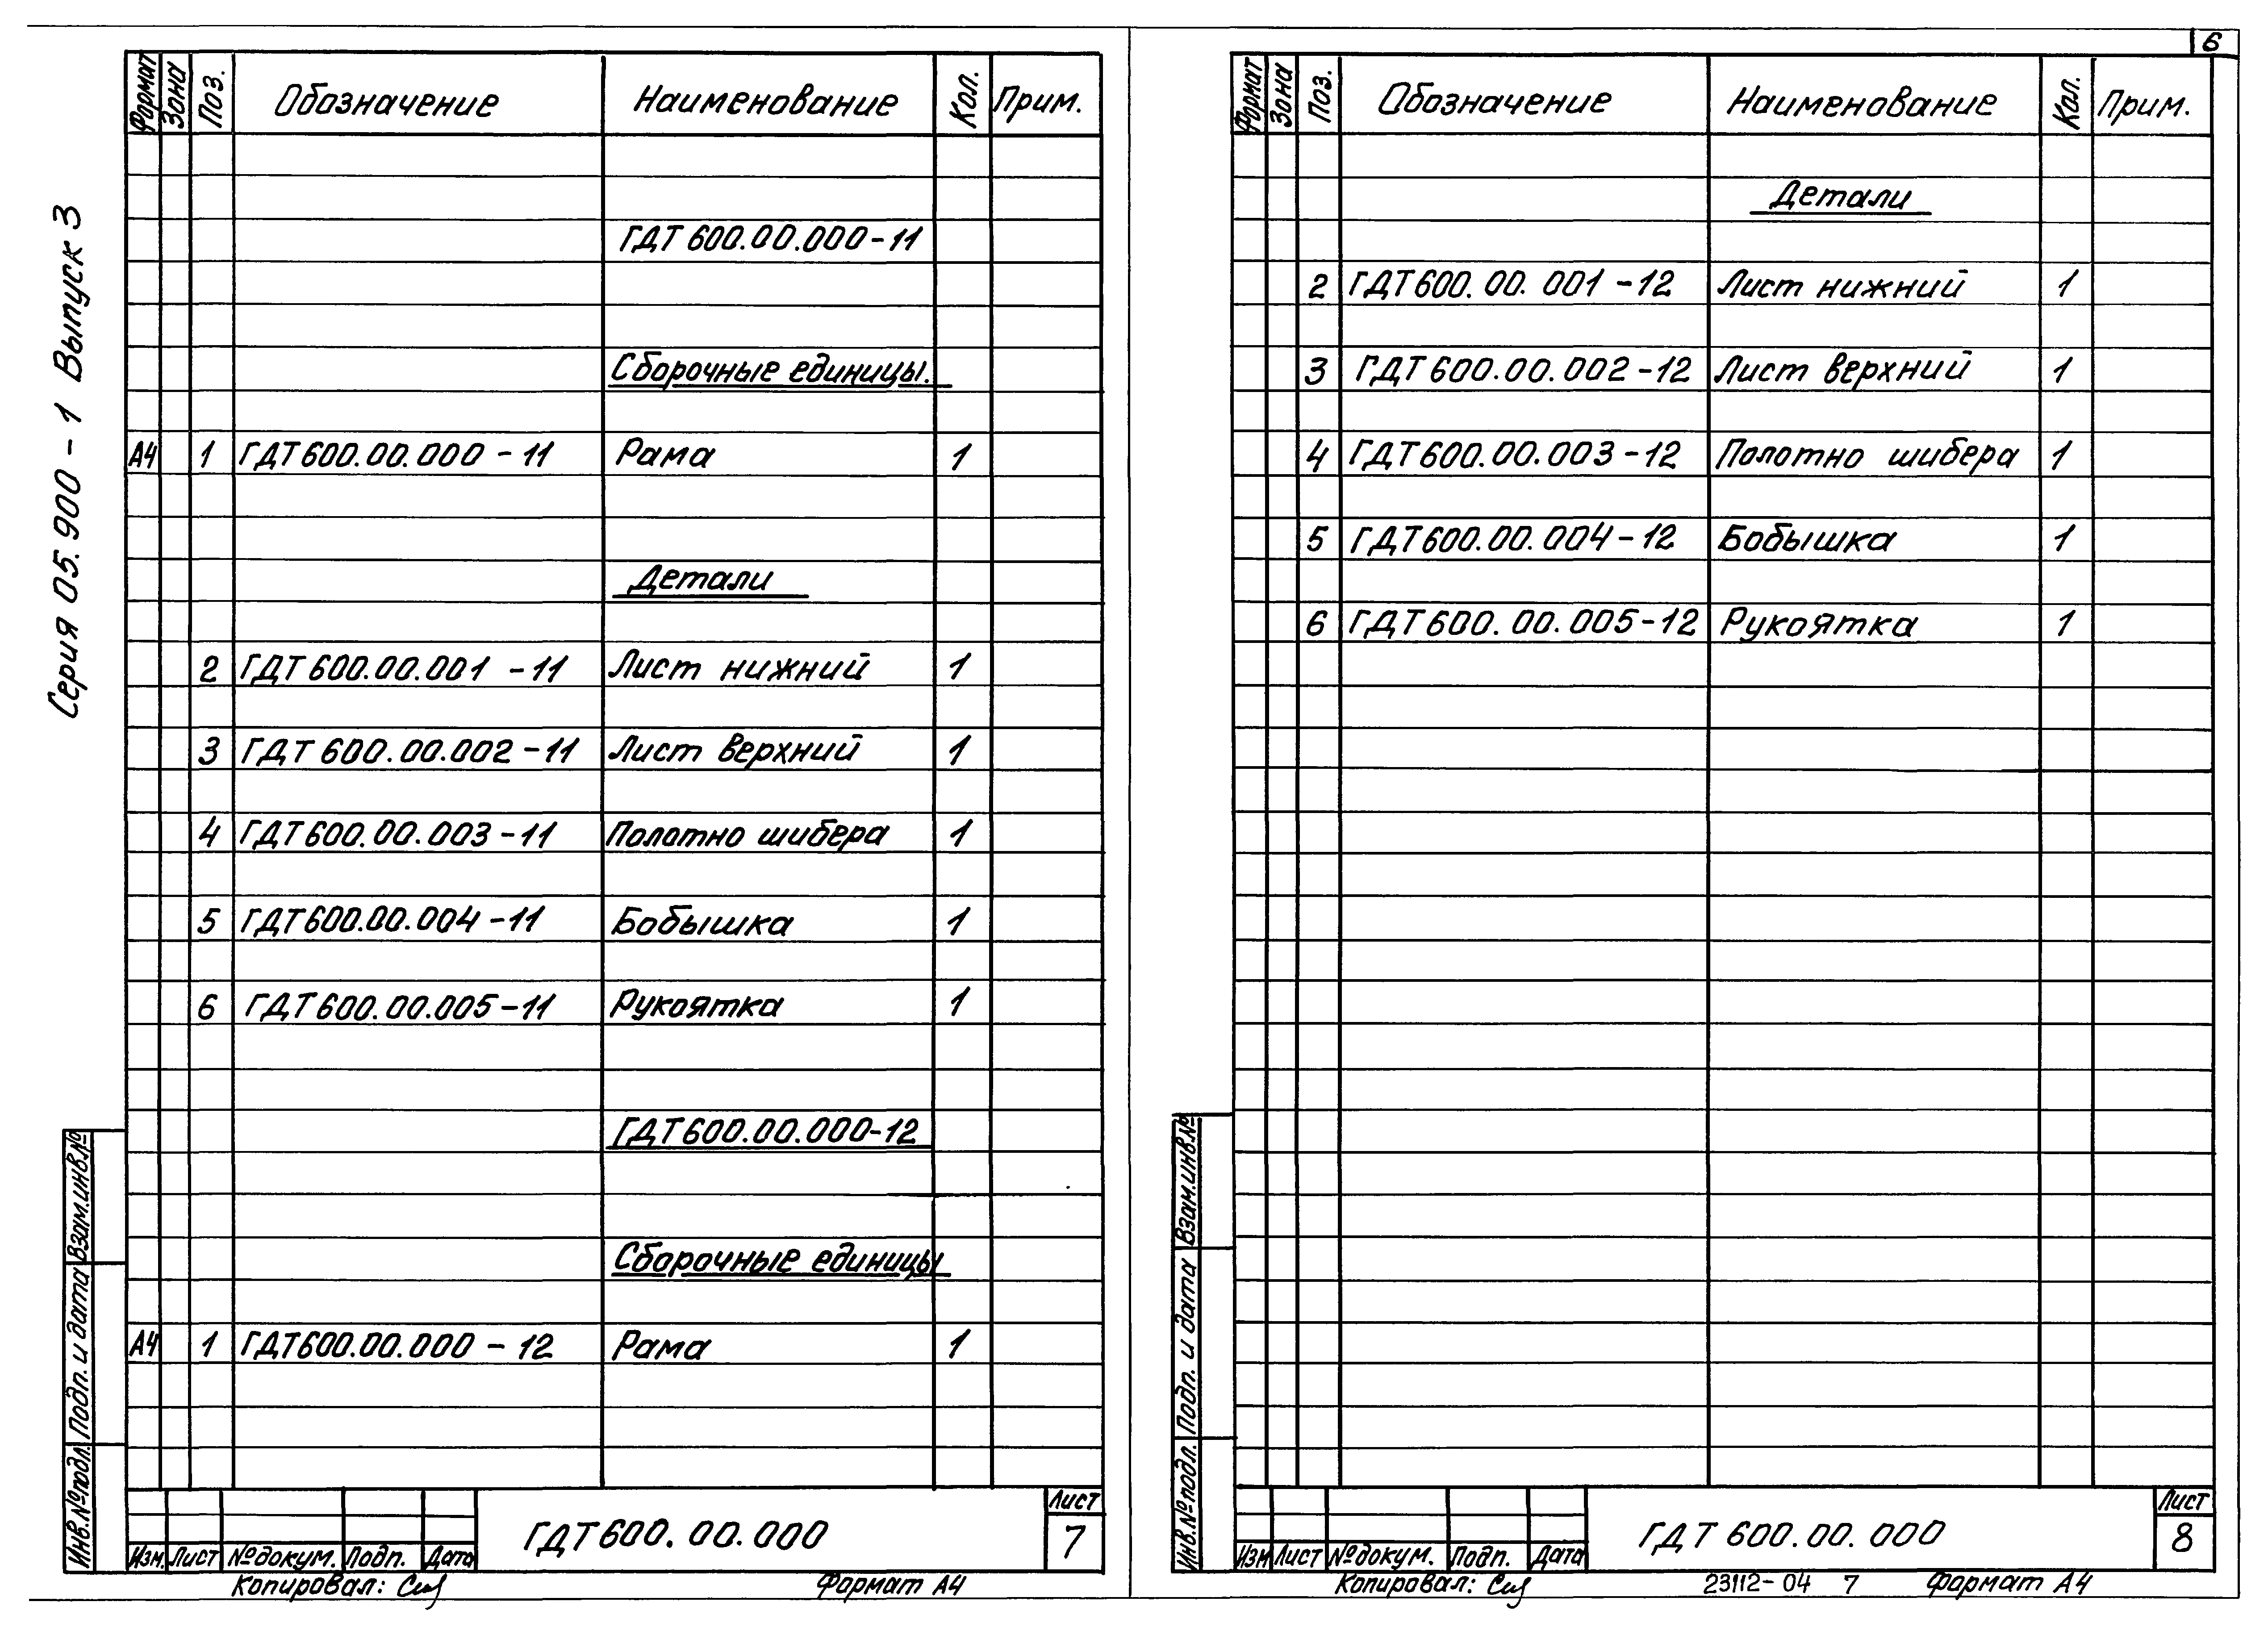 6
Серия 05.900-1 Выпуск 3
Формат Зона Поз. Обозначение Наименование Кол. Прим.
ГДТ 600.00.000-11
Сборочные единицы.
А4 1 ГДТ600.00.000-11 Рама 1
Детали
2 ГДТ600.00.001-11 Лист нижний 1
3 ГДТ 600.00.002-11 Лист верхний 1
4 ГДТ600.00.003-11 Полотно шибера 1
5 ГДТ600.00.004-11 Бобышка 1
6 ГДТ600.00.005-11 Рукоятка 1
ГДТ600.00.000-12
Сборочные единицы
А4 1 ГДТ600.00.000-12 Рама 1
Инв.№подл. Подп. и дата Взам.инв.№
Изм. Лист №докум. Подп. Дата
ГДТ600.00.000
Лист
7
Копировал:
Формат А4
Формат Зона Поз. Обозначение Наименование Кол. Прим.
Детали
2 ГДТ600.00.001-12 Лист нижний 1
3 ГДТ600.00.002-12 Лист верхний 1
4 ГДТ600.00.003-12 Полотно шибера 1
5 ГДТ600.00.004-12 Бобышка 1
6 ГДТ600.00.005-12 Рукоятка 1
Инв.№подл. Подп. и дата Взам.инв.№
Изм Лист №докум. Подп. Дата
ГДТ 600.00.000
Лист
8
Копировал:
23112-04 7
Формат А4